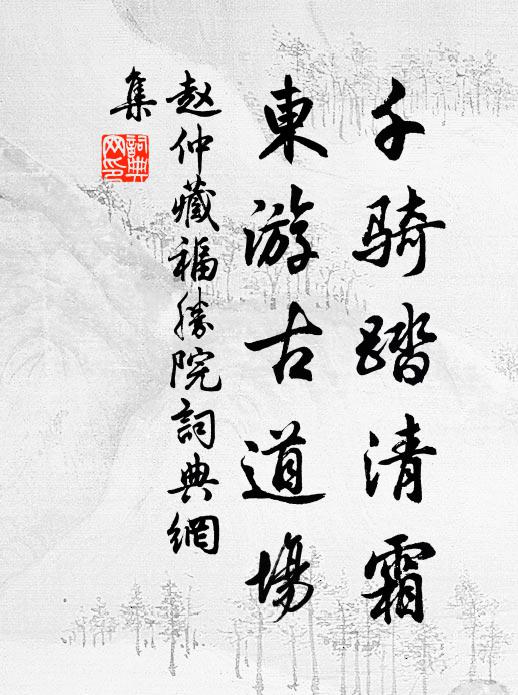 千騎踏清霜
東游古道場
赵仲藏福勝院詞典網
集
詞典
网印